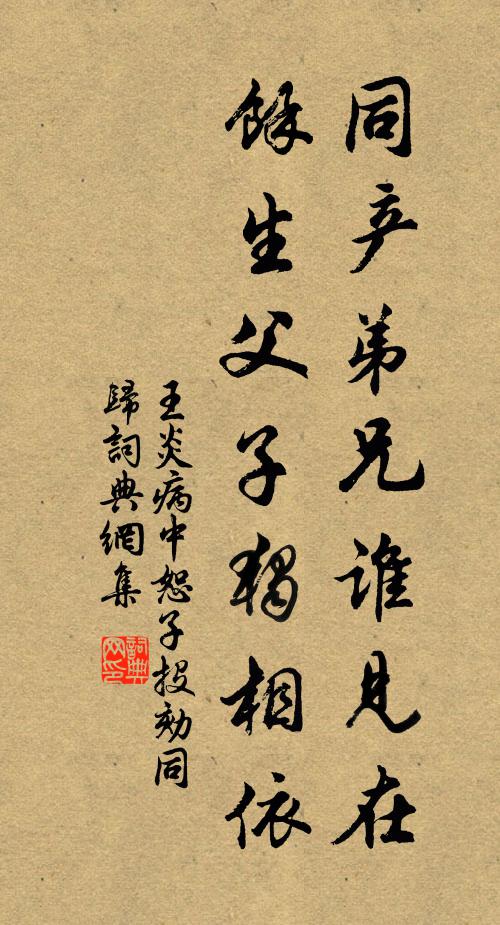 同产弟兄谁見在
餘生父子獨相依
王炎病中恕子投劾同
歸詞典網集
詞典网印